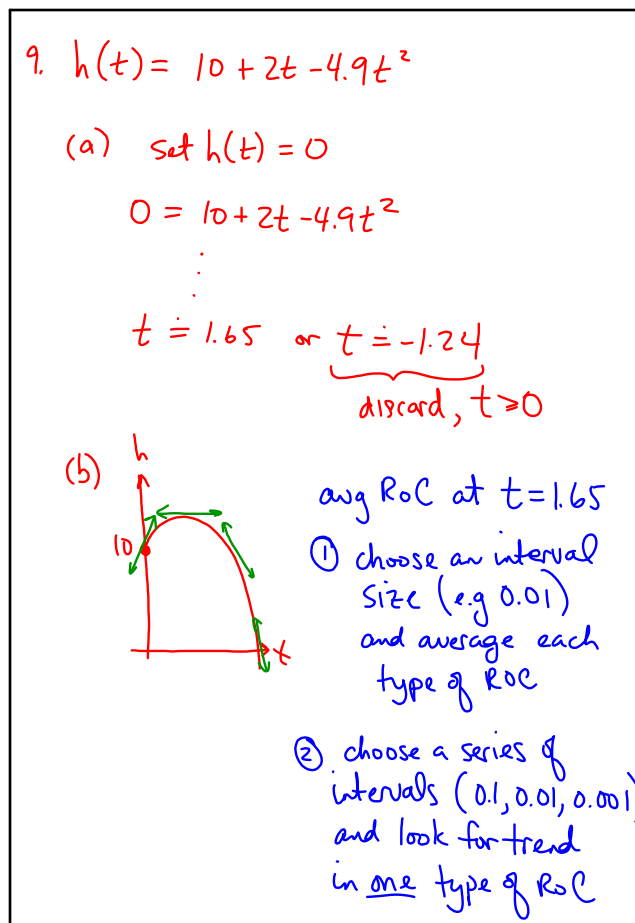 9. h(t) = 10 + 2t - 4.9t²
(a) set h(t) = 0
0 = 10 + 2t - 4.9t²
⋮
t ≐ 1.65 or t ≐ -1.24
discard, t ≥ 0
(b)
h
10
t
avg RoC at t = 1.65
① choose an interval
size (e.g 0.01)
and average each
type of ROC
② choose a series of
intervals (0.1, 0.01, 0.001)
and look for trend
in one type of RoC